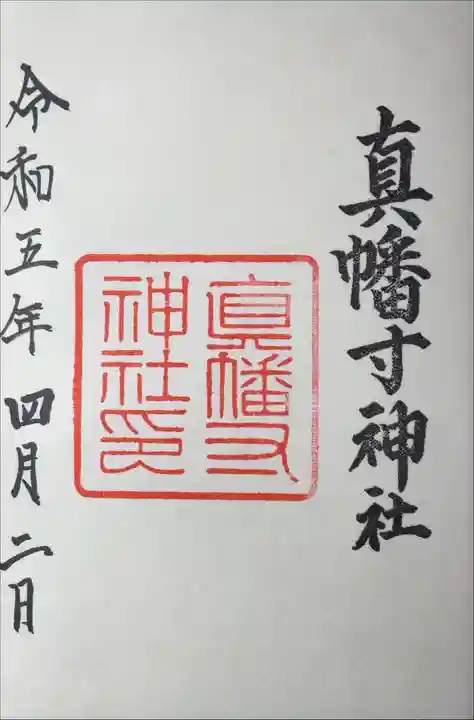 真幡寸神社
真幡寸
神社印
令和五年 四月二日